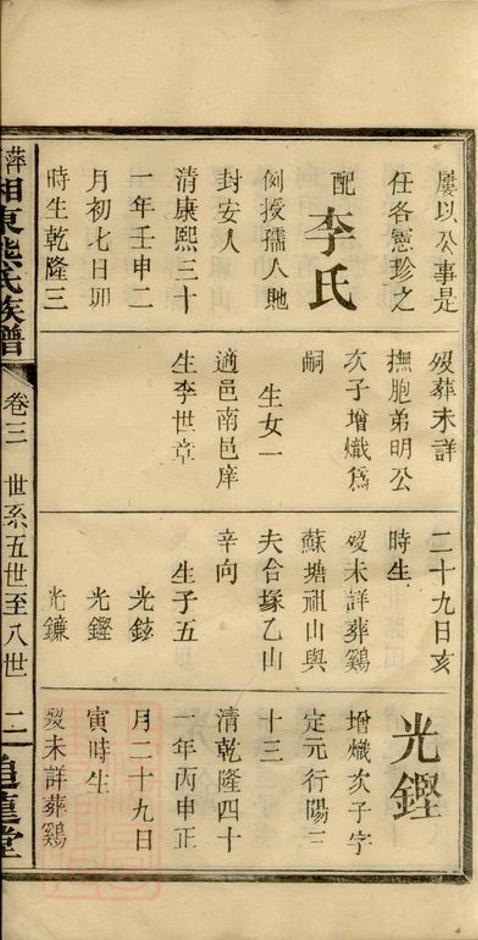 屢以公事是
任各憲珍之
配李氏
例授孺人貤
封安人
清康熙三十
一年壬申二
月初七日卯
時生乾隆三
歿葬未詳
撫胞弟明公
次子增熾爲
嗣
生女一
適邑南邑庠
生李世章
二十九日亥
時生
歿未詳葬鷄
蘇塘祖山與
夫合塚乙山
辛向
生子五
光鉉
光鏗
光鐮
光鏗
增熾次子字
定元行陽三
十三
清乾隆四十
一年丙申正
月二十九日
寅時生
歿未詳葬鷄
萍相東熊氏族譜
卷三
世系五世至八世
二